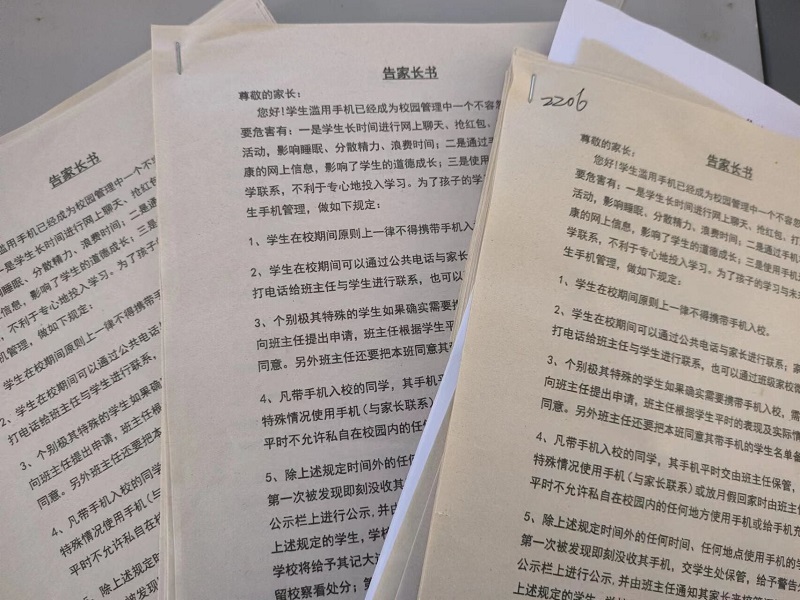 告家长书
尊敬的家长：
您好！学生滥用手机已经成为校园管理中一个不容忽
要危害有：一是学生长时间进行网上聊天、抢红包、
活动，影响睡眠、分散精力、浪费时间；二是通过手
康的网上信息，影响了学生的道德成长；三是使用
学联系，不利于专心地投入学习。为了孩子的学
生手机管理，做如下规定：
1、学生在校期间原则上一律不得携带手机入
2、学生在校期间可以通过公共电话与家长
打电话给班主任与学生进行联系，也可以
3、个别极其特殊的学生如果确实需要携
向班主任提出申请，班主任根据学生平
同意。另外班主任还要把本班同意其
4、凡带手机入校的同学，其手机平
特殊情况使用手机（与家长联系）
平时不允许私自在校园内的任
5、除上述规定时间外的任何
第一次被发现即刻没收其
公示栏上进行公示，并由
上述规定的学生，学校
学校将给予其记大过
留校察看处分；第
2206
告家长书
尊敬的家长：
您好！学生滥用手机已经成为校园管理中一个不容忽
要危害有：一是学生长时间进行网上聊天、抢红包、打
活动，影响睡眠、分散精力、浪费时间；二是通过手机
康的网上信息，影响了学生的道德成长；三是使用手机
学联系，不利于专心地投入学习。为了孩子的学习与未
生手机管理，做如下规定：
1、学生在校期间原则上一律不得携带手机入校。
2、学生在校期间可以通过公共电话与家长进行联系；家
打电话给班主任与学生进行联系，也可以通过班级家校
3、个别极其特殊的学生如果确实需要携带手机入校，需
向班主任提出申请，班主任根据学生平时的表现及实际情
同意。另外班主任还要把本班同意其带手机的学生名单备
4、凡带手机入校的同学，其手机平时交由班主任保管，
特殊情况使用手机（与家长联系）或放月假回家时由班主任
平时不允许私自在校园内的任何地方使用手机或给手机充
5、除上述规定时间外的任何时间、任何地点使用手机的学
第一次被发现即刻没收其手机，交学生处保管，给予警告处
公示栏上进行公示，并由班主任通知其家长来校
上述规定的学生，学
告家长书
滥用手机已经成为校园管理中一个不
一是学生长时间进行网上聊天、抢红包
睡眠、分散精力、浪费时间；二是通
信息，影响了学生的道德成长；三
不利于专心地投入学习。为了孩子
机管理，做如下规定：
学生在校期间原则上一律不得
2、学生在校期间可以通过公共电话
打电话给班主任与学生进行联系，
3、个别极其特殊的学生如果确
向班主任提出申请，班主任根
同意。另外班主任还要把本
4、凡带手机入校的同学
特殊情况使用手机（与
平时不允许私自在校
5、除上述规定
第一次被发现